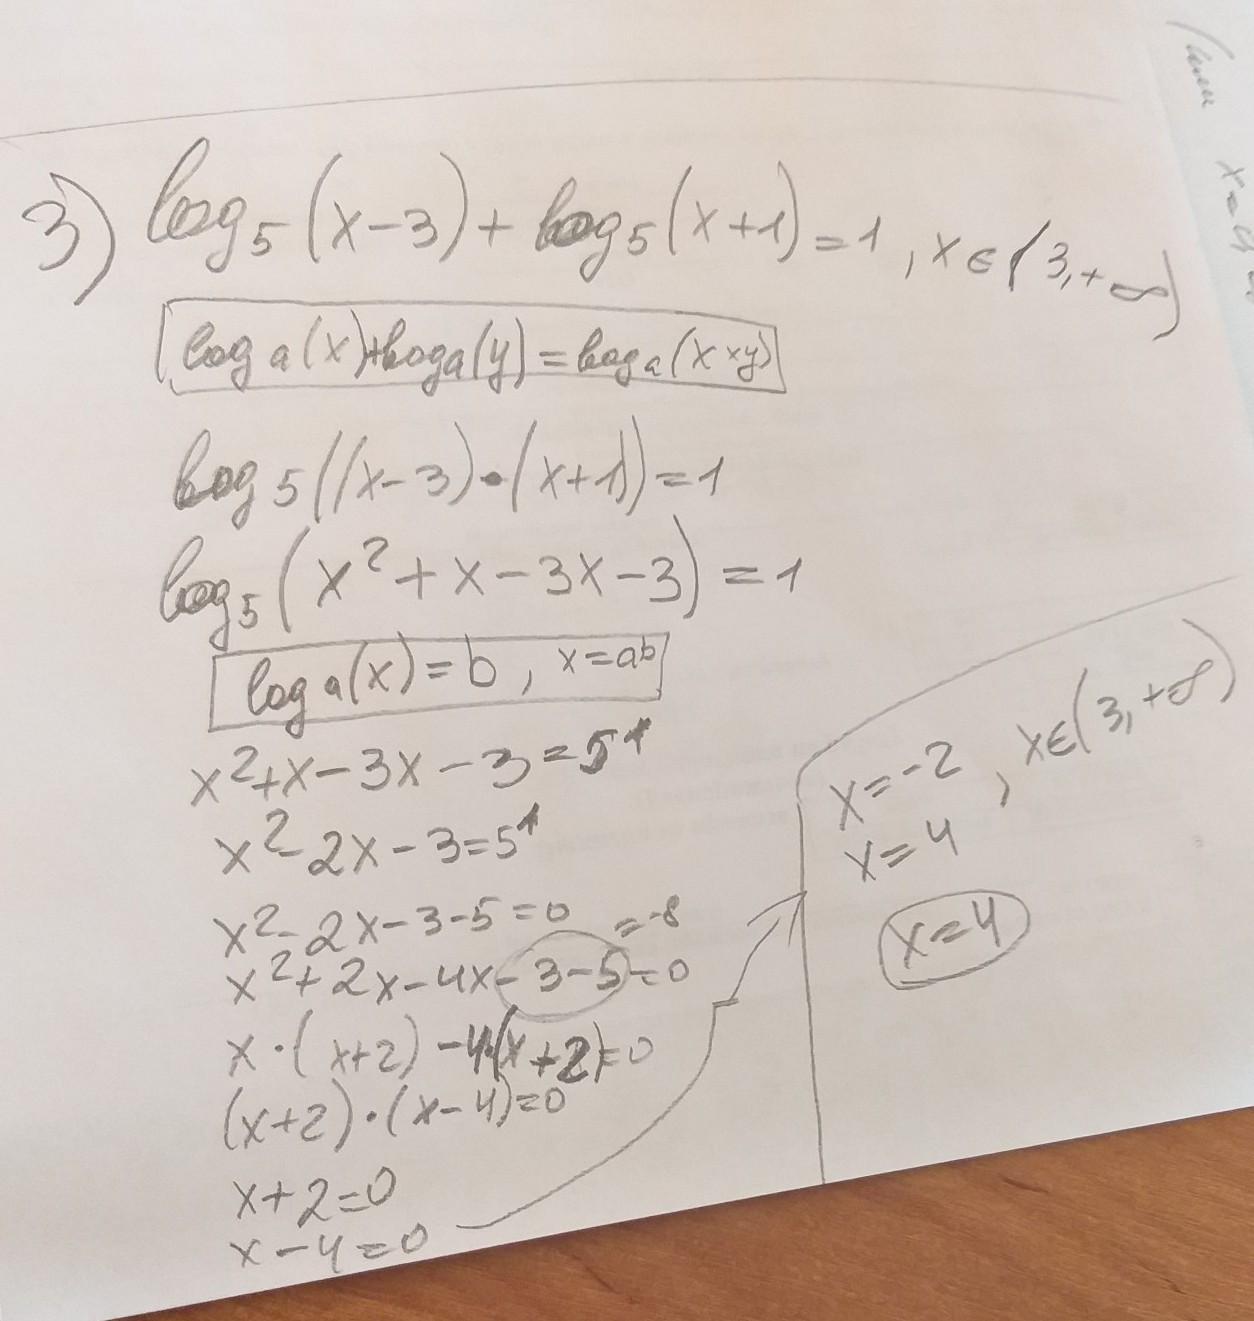 3) log₅(x-3)+log₅(x+1)=1, x∈(3,+∞)
log a(x)+loga(y)=logₐ(x×y)
log 5((x-3)•(x+1))=1
log₅(x²+x-3x-3)=1
log a(x)=b, x=aᵇ
x²+x-3x-3=5¹
x²-2x-3=5¹
x²-2x-3-5=0
=-8
x²+2x-4x-3-5=0
x·(x+2)-4·(x+2)=0
(x+2)·(x-4)=0
x+2=0
x-4=0
x=-2, x∈(3,+∞)
x=4
x=4